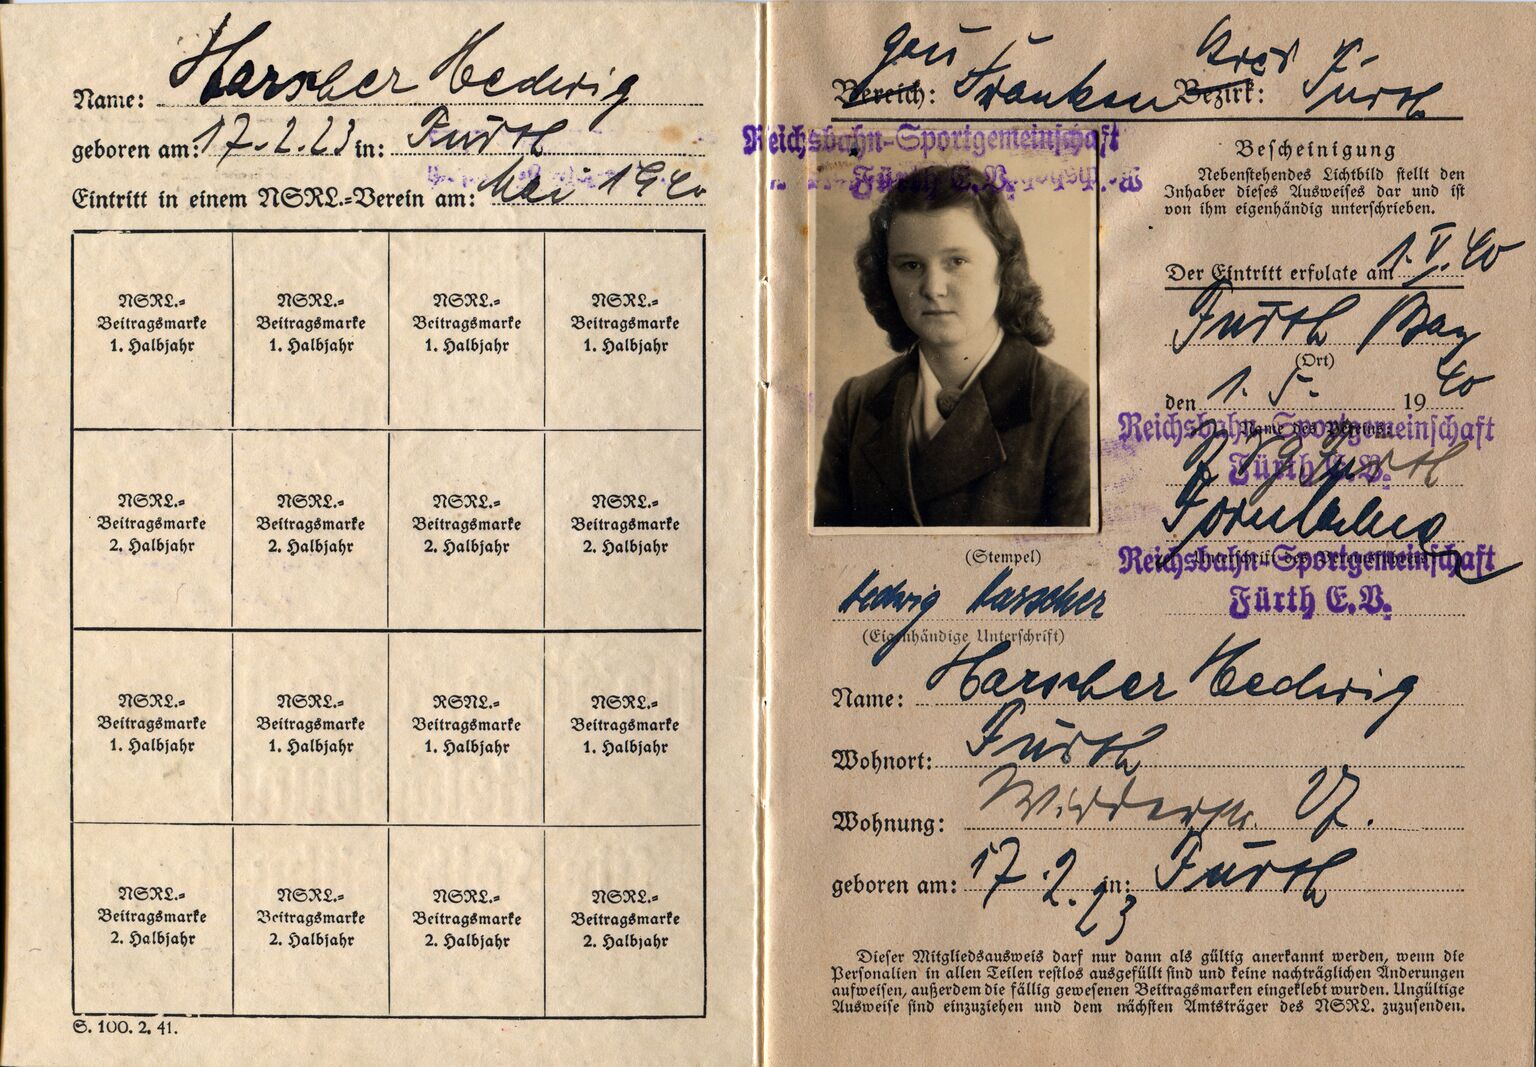 Name: Harscher Hedwig
geboren am: 17.2.23 in: Fürth
Eintritt in einem NSRL.-Verein am: Mai 1940
NSRL.-
Beitragsmarke
1. Halbjahr
NSRL.-
Beitragsmarke
1. Halbjahr
NSRL.-
Beitragsmarke
1. Halbjahr
NSRL.-
Beitragsmarke
1. Halbjahr
NSRL.-
Beitragsmarke
2. Halbjahr
NSRL.-
Beitragsmarke
2. Halbjahr
NSRL.-
Beitragsmarke
2. Halbjahr
NSRL.-
Beitragsmarke
2. Halbjahr
NSRL.-
Beitragsmarke
1. Halbjahr
NSRL.-
Beitragsmarke
1. Halbjahr
RSNL.-
Beitragsmarke
1. Halbjahr
NSRL.-
Beitragsmarke
1. Halbjahr
NSRL.-
Beitragsmarke
2. Halbjahr
NSRL.-
Beitragsmarke
2. Halbjahr
NSRL.-
Beitragsmarke
2. Halbjahr
NSRL.-
Beitragsmarke
2. Halbjahr
S. 100. 2. 41.
Gau Kreis
Bereich: Franken Bezirk: Fürth
Reichsbahn-Sportgemeinschaft
Fürth E.V.
Bescheinigung
Nebenstehendes Lichtbild stellt den
Inhaber dieses Ausweises dar und ist
von ihm eigenhändig unterschrieben.
Der Eintritt erfolgte am 1.V.40
Fürth Bay
(Ort)
den 1. 5. 1940
Name des Vereins:
Reichsbahn-Sportgemeinschaft
Fürth E.V.
RSG Fürth
Unterschrift des Vereinsführers
Reichsbahn-Sportgemeinschaft
Fürth E.V.
(Stempel)
Hedwig Harscher
(Eigenhändige Unterschrift)
Name: Harscher Hedwig
Wohnort: Fürth
Wohnung: 17.
geboren am: 17.2.23 in: Fürth
Dieser Mitgliedsausweis darf nur dann als gültig anerkannt werden, wenn die
Personalien in allen Teilen restlos ausgefüllt sind und keine nachträglichen Änderungen
aufweisen, außerdem die fällig gewesenen Beitragsmarken eingeklebt wurden. Ungültige
Ausweise sind einzuziehen und dem nächsten Amtsträger des NSRL. zuzusenden.